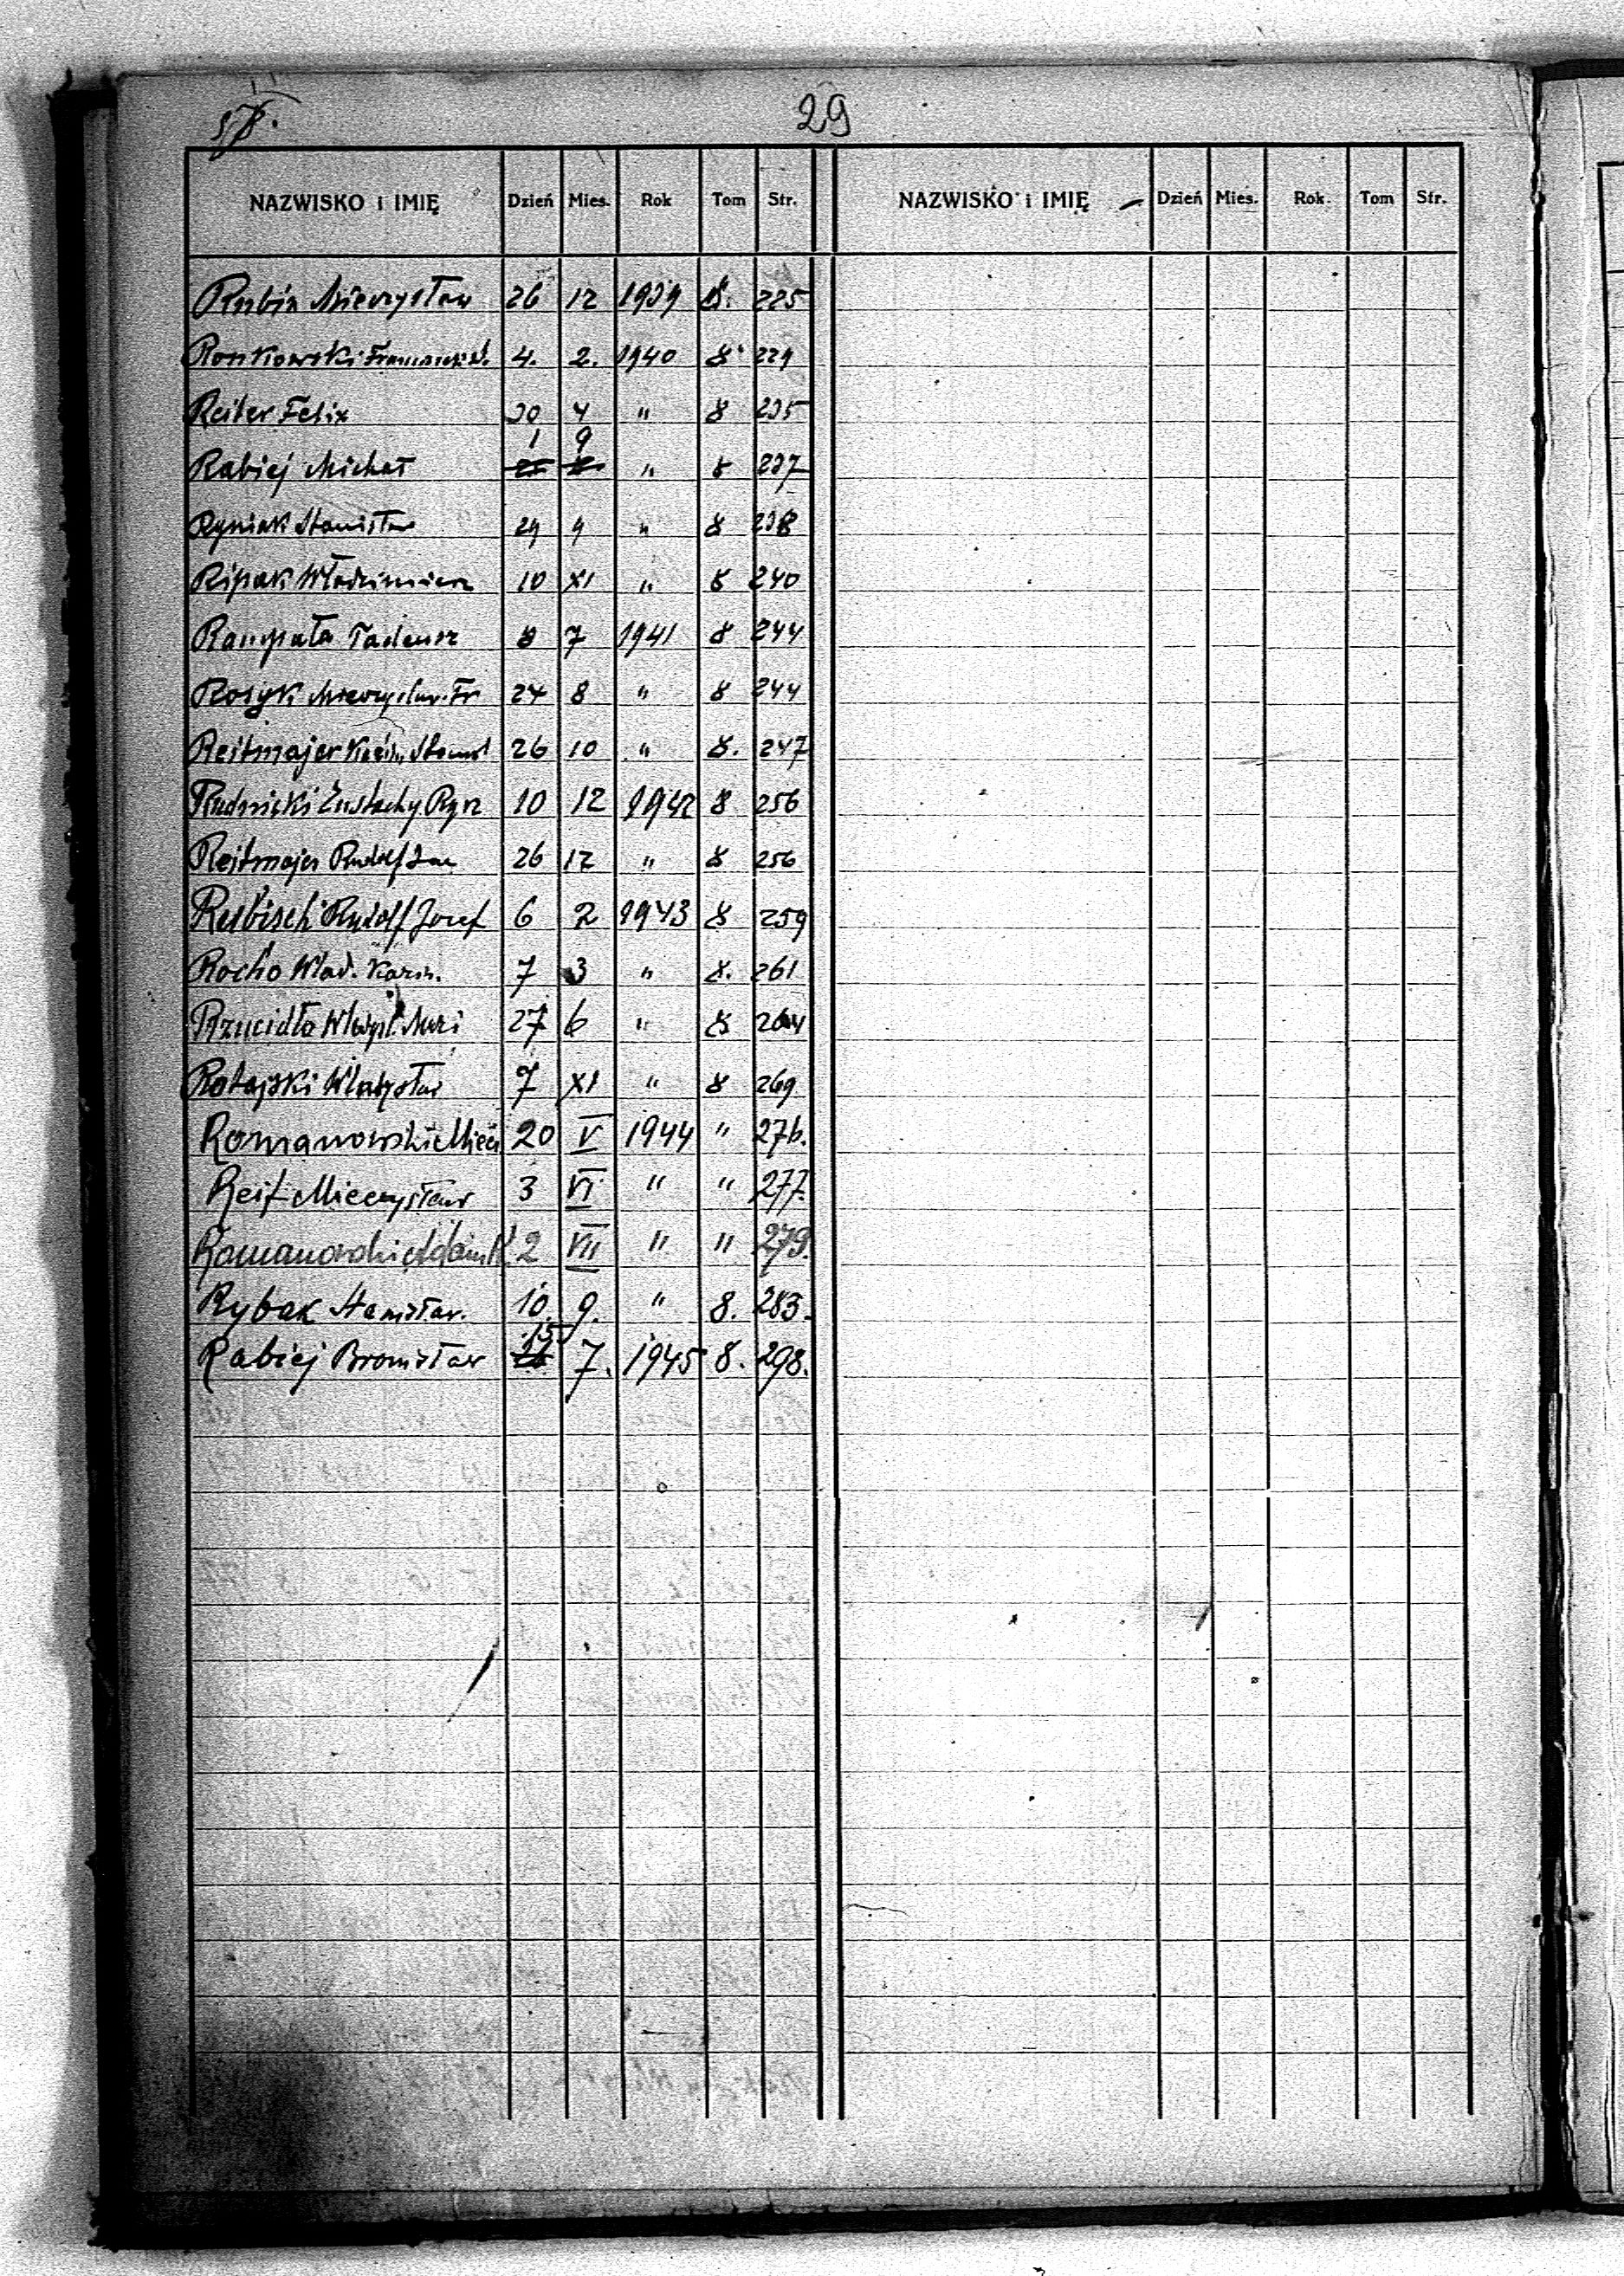 29
NAZWISKO i IMIĘ Dzień Mies. Rok Tom Str. NAZWISKO i IMIĘ Dzień Mies. Rok. Tom Str.
Rubin Mieczysław 26 12 1939 8. 225
Ronkowski 4. 2. 1940 8 229
Reiter Felix 30 4 " 8 235
1 9
Rabiej Michał " 8 237
Ryniak Stanisław 29 9 " 8 238
Ripak Włodzimierz 10 XI " 8 240
Rampała Tadeusz 8 7 1941 8 244
Rosyk Mieczysław Fr 24 8 " 8 244
Reitmajer 26 10 " 8. 247
Rudnicki Eustachy Rysz 10 12 1942 8 256
Reitmajer Rudolf Jan 26 12 " 8 256
Rubisch Rudolf Józef 6 2 1943 8 259
Rocho Wład. Kazim. 7 3 " 8. 261
Rzucidło 27 6 " 8 264
Ratajski Władysław 7 XI " 8 269
Romanowski Miecz 20 V 1944 " 276.
Reif Mieczysław 3 VI " " 277.
Romanowski Adam 2 VII " " 279.
Rybak Stanisław. 10. 9. " 8. 283.
15
Rabiej Bronisław 7. 1945 8. 298.